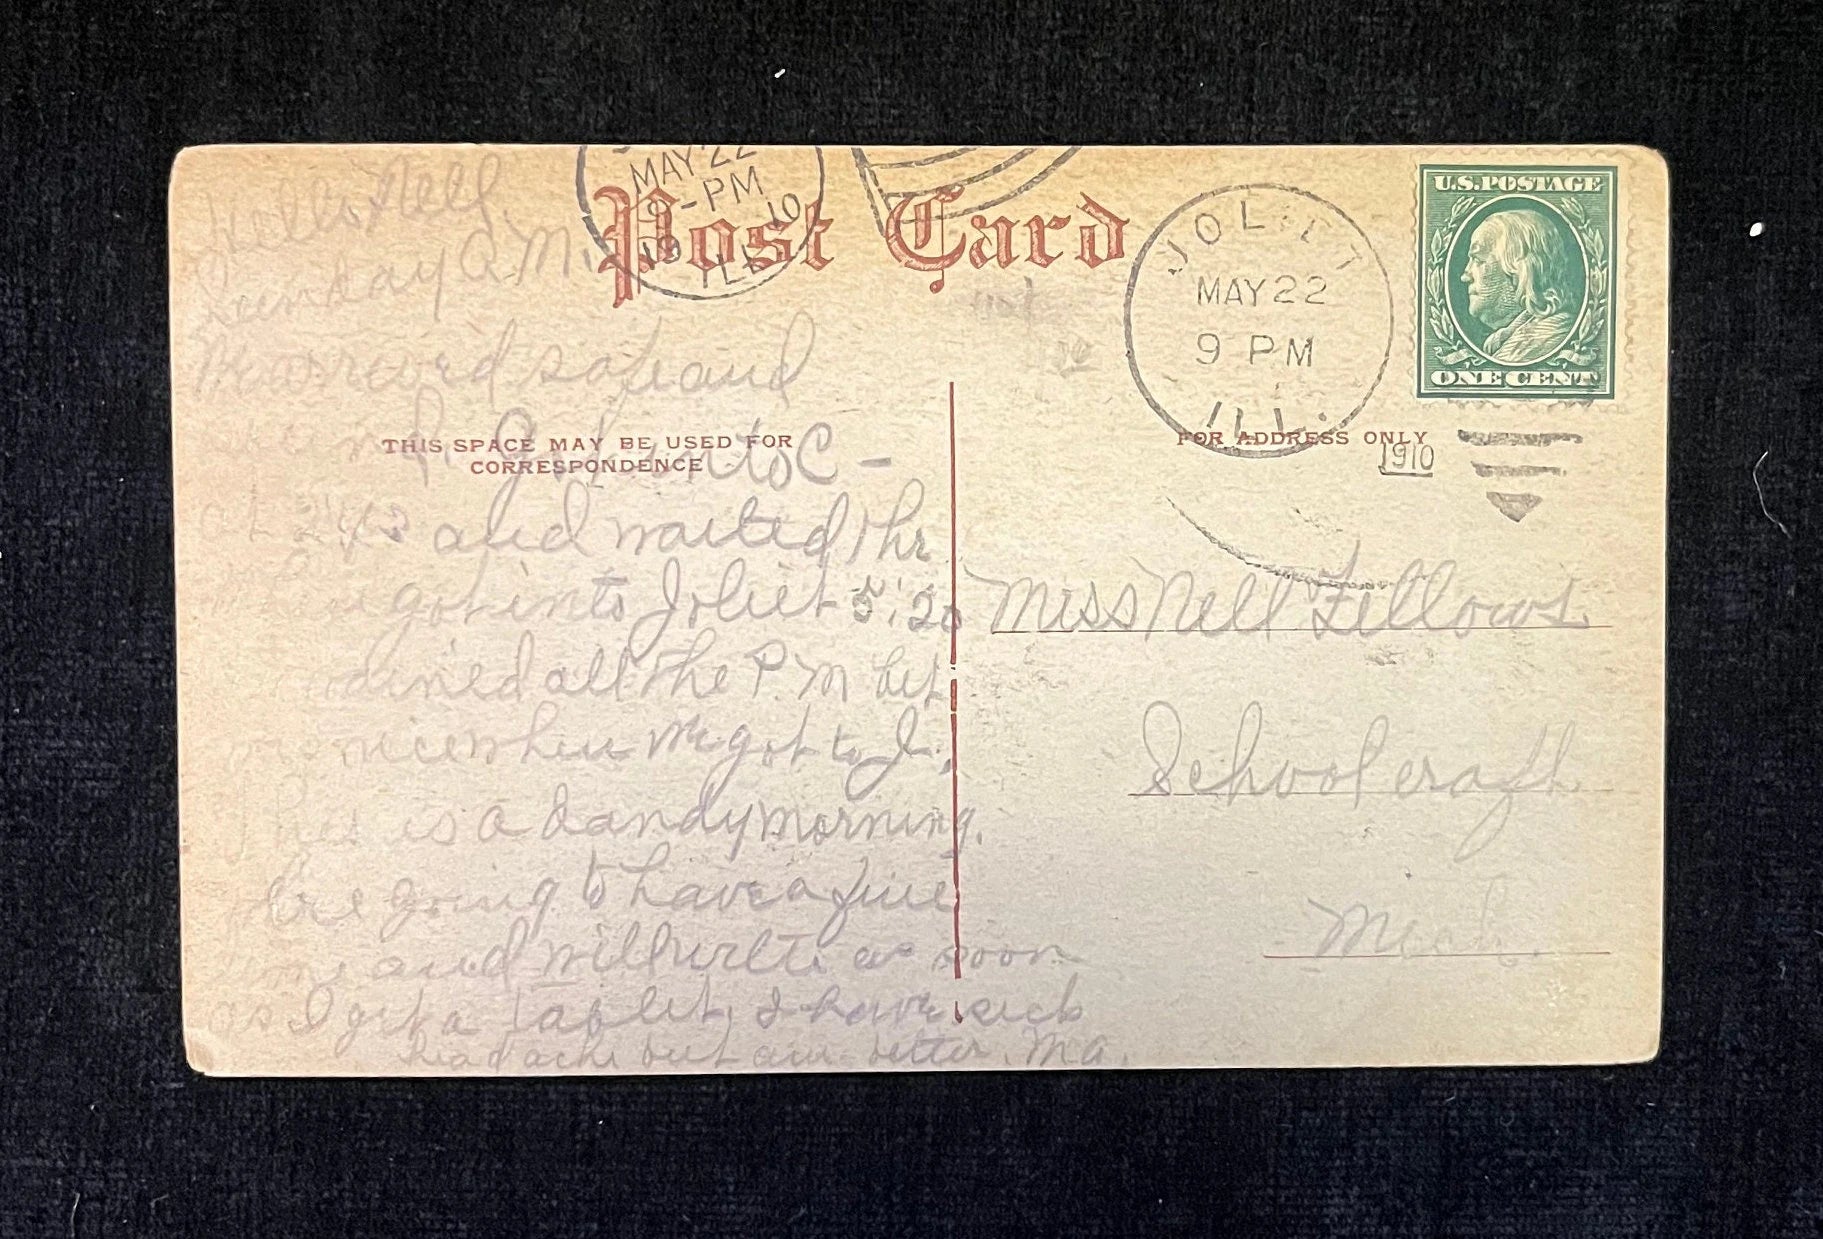 Hello Nell
Sunday A.M.
MAY 22
9-PM
1910
ILL
Post Card
JOLIET
MAY 22
9 PM
ILL.
U.S. POSTAGE
ONE CENT
safe and
THIS SPACE MAY BE USED FOR
CORRESPONDENCE
FOR ADDRESS ONLY
1910
into C -
at 2 43 and waited 1 hr
got into Joliet 5:20
rained all the P.M but
was nice when we got to J.
This is a dandy morning.
Are going to have a fine
time and will write as soon
as I get a tablet, I have sick
headache but am better. Ma.
Miss Nell Fellows
Schoolcraft
Mich.